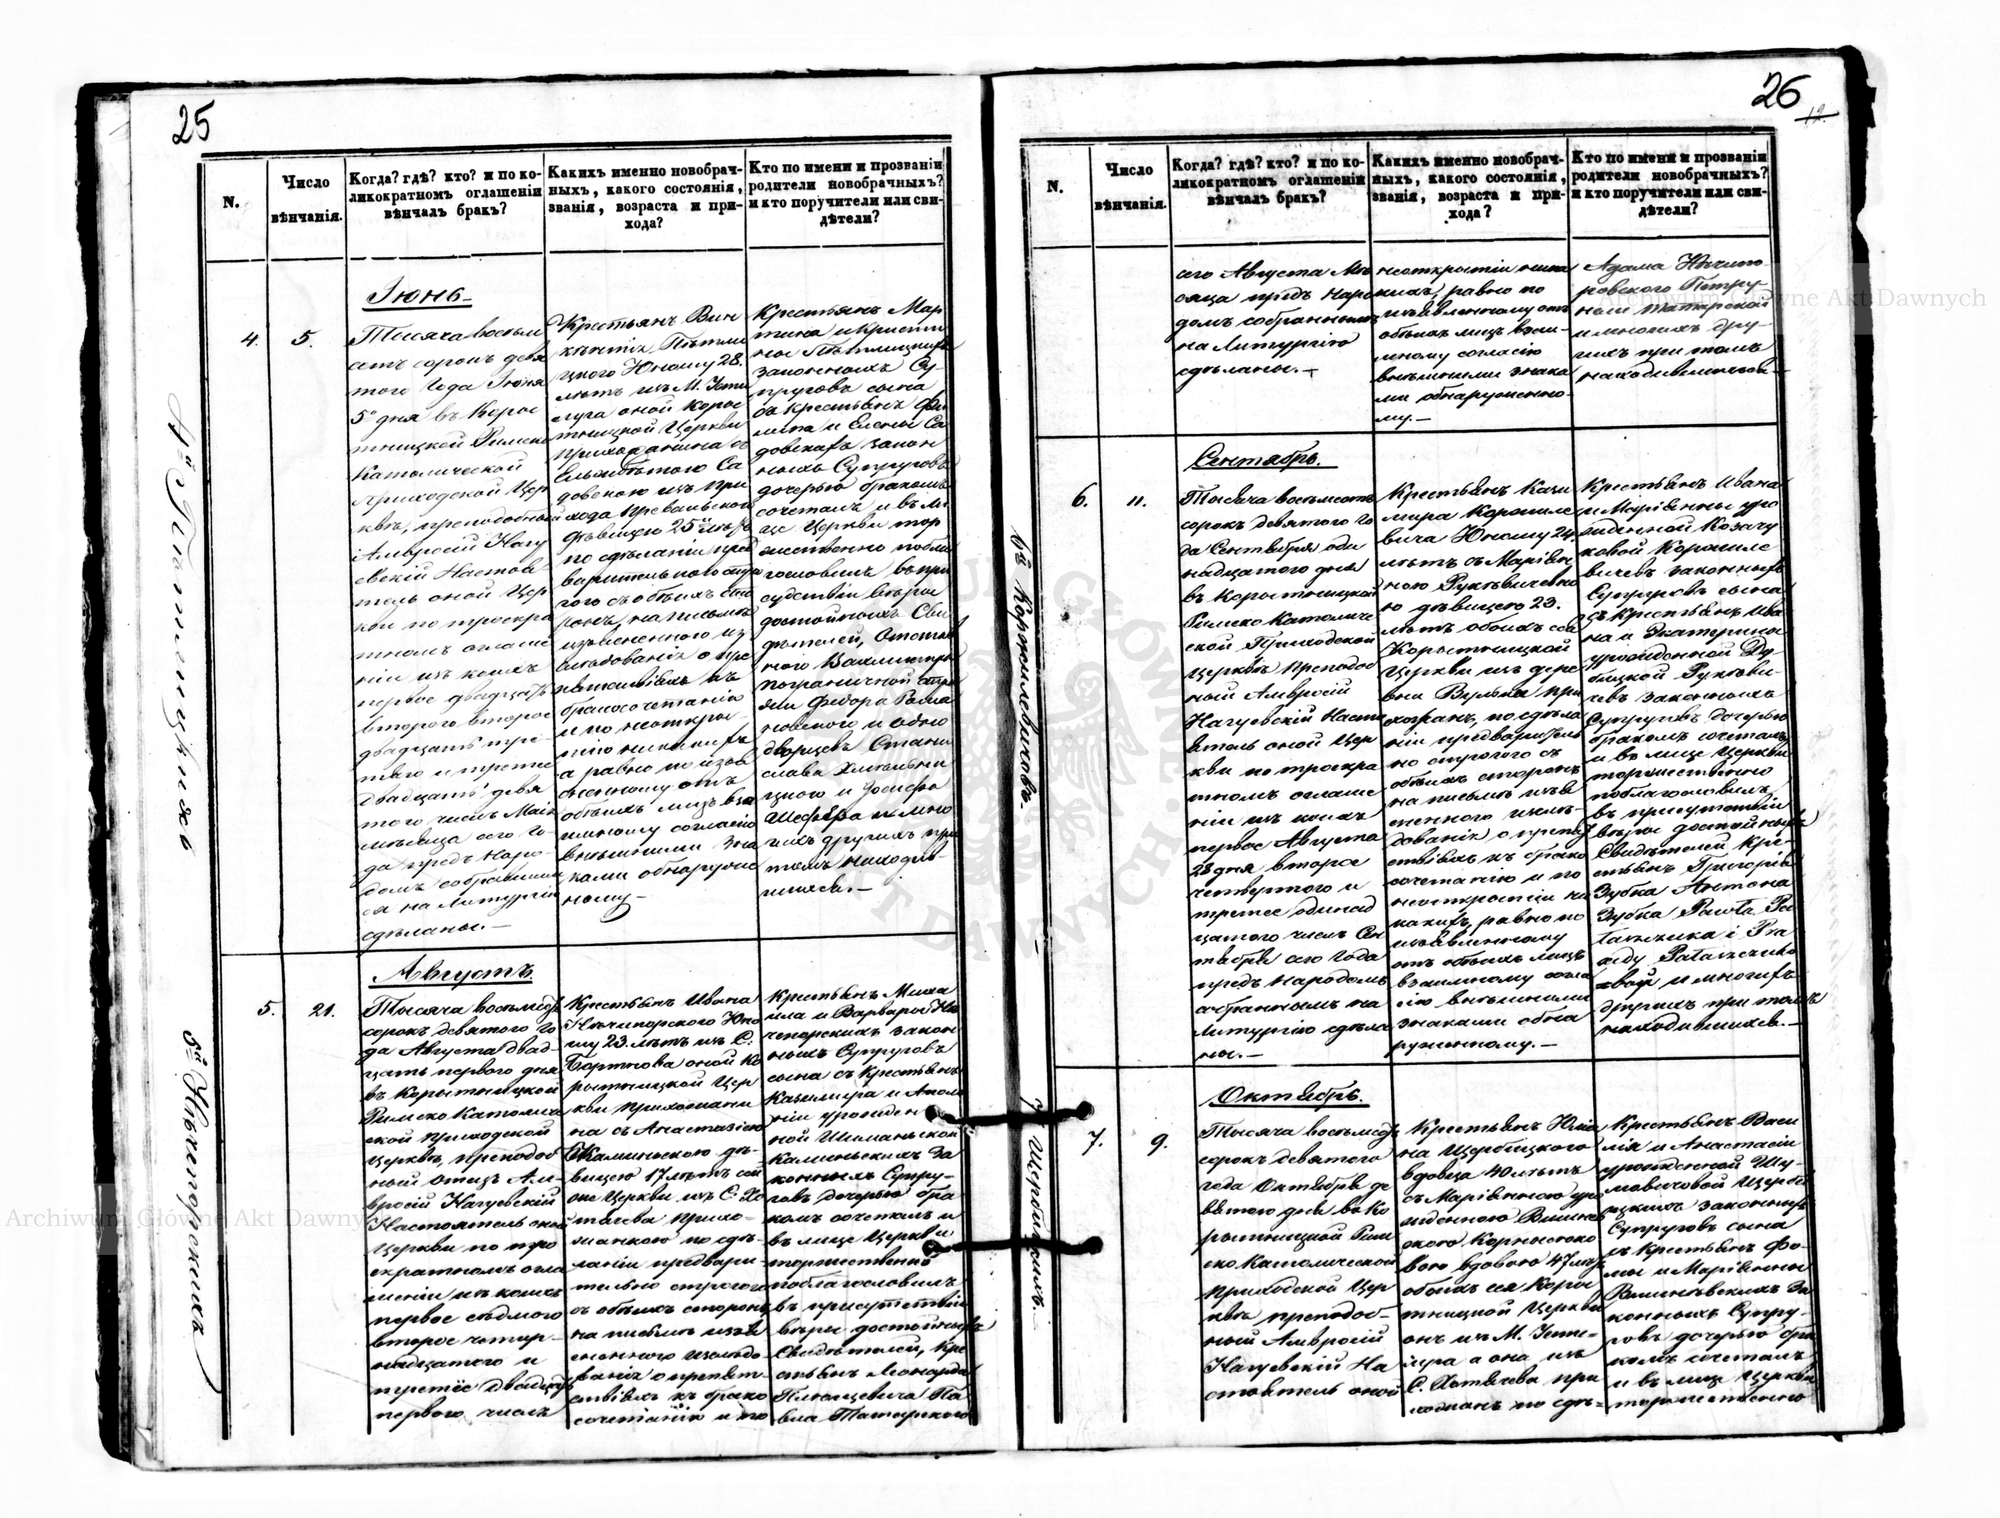 25
N.
Число
вѣнчанія.
Когда? гдѣ? кто? и по ко-
ликократномъ оглашеніи
вѣнчалъ бракъ?
Какихъ именно новобрач-
ныхъ, какого состоянія,
званія, возраста и при-
хода?
Кто по имени и прозванію
родители новобрачныхъ?
и кто поручители или сви-
дѣтели?
4.
5.
Іюнь
Тысяча восемь
сотъ сорокъ девя
того Года Іюня
5го дня въ Коры
тницкой Римско
Католической
Приходской Цер
квѣ, преподобный
Амвросій Нагу
евскій Настоя
тель оной Цер
кви по троекра
тномъ оглаше
ніи изъ коихъ
первое двадцать
втораго второе
двадцать тре-
тяго и третіе
двадцать девя
того числъ Маія
мѣсяца сего Го-
да предъ Наро-
домъ собравшим
ся на Литургію
сдѣланы.—
Крестьянъ Вин
кѣнтія
Юному 28.
лѣтъ изъ М. Усти
луга оной Коры
тницкой Церкви
прихожанина съ
Ельжбѣтою Са
довскою изъ При
хода
дѣвицею 25
по сдѣланіи пред
варительного стро
гого съ обѣихъ сто
ронъ, на письмѣ
изъясненного из
слѣдованія о пре
пятствіяхъ къ
бракосочетанію
и по неоткры
тію никакихъ
а равно по изъя
вленному отъ
обѣихъ лицъ вза
имному согласію
внѣшними зна
ками обнаружен
ному—
Крестьянъ Мар
тина и Кристи
ны
законныхъ Су-
пруговъ сына
съ крестьянъ Фи
липа и Елены Са
довскихъ закон
ныхъ Супруговъ
дочерью бракомъ
сочеталъ и въ ли
це Церкви тор
жественно побла
гословилъ въ при
сутствіи вѣры
достойныхъ Сви
дѣтелей, Отстав
ного Вахмистра
пограничной стра
жи Федора Рома
новского и одно
дворцевъ Стани
слава
и Іосифа
и мно
гихъ другихъ при
томъ находив-
шихся.—
5.
21.
Августъ
Тысяча восемьсотъ
сорокъ девятого Го
да Августа двад-
цать первого дня
въ Корытницкой
Римско Католиче
ской приходской
Церквѣ, преподоб
ный отецъ Ам-
вросій Нагуевскій
Настоятель оной
Церкви по тро
екратномъ огла
шеніи изъ коихъ
первое седмого
второе четыр-
надцатого и
третіе двадцать
первого числъ
Крестьянъ Ивана
Нѣчипорского Юно
шу 23. лѣтъ изъ С.
оной Ко
рытницкой Цер
кви прихожани
на съ Анастазіею
Каминьскою дѣ-
вицею 17 лѣтъ сей
же Церкви изъ С. Хо
тячева прихо-
жанкою по сдѣ-
ланіи предвари-
тельно строгого
съ обѣихъ сторонъ
на письмѣ изъя
сненного изслѣдо-
ванія о препят-
ствіяхъ къ брако
сочетанію и по
Крестьянъ Миха
ила и Варвары Нѣ
чипорскихъ закон
ныхъ Супруговъ
сына съ Крестьянъ
Казимира и Аполо
ніи урожден
ной Шиманьской
Каминьскихъ за
конныхъ Супру-
говъ дочерью бра
комъ сочеталъ и
въ лице Церкви
торжественно
поблагословилъ
въ присутствіи
вѣры достойныхъ
Свидѣтелей, Кре
стьянъ Леонарда
Па
вла Татарского
5й Нѣчипорскихъ
26
N.
Число
вѣнчанія.
Когда? гдѣ? кто? и по ко-
ликократномъ оглашеніи
вѣнчалъ бракъ?
Какихъ именно новобрач-
ныхъ, какого состоянія,
званія, возраста и при-
хода?
Кто по имени и прозванію
родители новобрачныхъ?
и кто поручители или сви-
дѣтели?
сего Августа Мѣ
сяца предъ Наро
домъ собраннымъ
на Литургію
сдѣланы.—
неоткрытіи ника
кихъ, равно по
изъявленному отъ
обѣихъ лицъ взаи
мному согласію
внѣшними знака
ми обнаруженно-
му.—
Адама Нѣчипо-
ровского Петру
нели Татарской
и многихъ дру-
гихъ при томъ
находившихся—
6.
11.
Сентябрь.
Тысяча восемьсотъ
сорокъ девятого Го
да Сентября оди
надцатого дня
въ Корытницкой
Римско Католиче
ской Приходской
Церквѣ Преподоб
ный Амвросій
Нагуевскій Насто
ятель оной Цер
кви по троекра
тномъ оглаше
ніи изъ коихъ
первое Августа
28 дня второе
четвертого и
третее одинад
цатого числъ Сен
тября сего Года
предъ народомъ
собраннымъ на
Литургію сдѣла
ны.—
Крестьянъ Кази
мира Корниле
вича Юношу 24.
лѣтъ съ Маріян
ною Руткевичевно
ю дѣвицею 23.
лѣтъ обоихъ сея
Корытницкой
Церкви изъ дере
вни Вулька при
хожанъ, по сдѣла
ніи предваритель
но строгого съ
обѣихъ сторонъ
на письмѣ изъя
сненного изслѣ
дованія о препят
ствіяхъ къ брако
сочетанію и по
неоткрытіи ни
какихъ, равно по
изъявленному
отъ обѣихъ лицъ
взаимному согла
сію внѣшними
знаками обна
руженному.—
Крестьянъ Ивана
и Маріянны уро
жденной Козачу
ковой Корниле
вичевъ законныхъ
Супруговъ сына
съ Крестьянъ Ива
на и Екатерины
урожденной
законныхъ
Супруговъ дочерью
бракомъ сочеталъ
и въ лице Церкви
торжественно
поблагословилъ
въ присутствіи
вѣры достойныхъ
Свидѣтелей, Кре
стьянъ Григорія
Зубка Антона
Зубка
и многихъ
другихъ при томъ
находившихся.—
6й Корнилевичовъ.
7.
9.
Октябрь.
Тысяча восемьсотъ
сорокъ девятого
года Октября де
вятого дня въ Ко
рытницкой Рим
ско Католической
приходской Цер
квѣ преподоб-
ный Амвросій
Нагуевскій На
стоятель оной
Крестьянъ Юліа
на Щербицкого
вдовца 40 лѣтъ
съ Маріянною уро
жденною
вою вдовою 47 лѣтъ
обоихъ сея Коры
тницкой Церкви
онъ изъ М. Усти-
луга а она изъ
С. Хотячева при
хожанъ по сдѣ-
Крестьянъ Васи
лія и Анастасіи
урожденной Шу-
Щерби
цкихъ законныхъ
Супруговъ сына
съ Крестьянъ Фо-
мы и Маріянны
за
конныхъ Супру-
говъ дочерью бра
комъ сочеталъ
и въ лице Церкви
торжественно
Archiwum Główne Akt Dawnych
Archiwum Główne Akt Dawnych